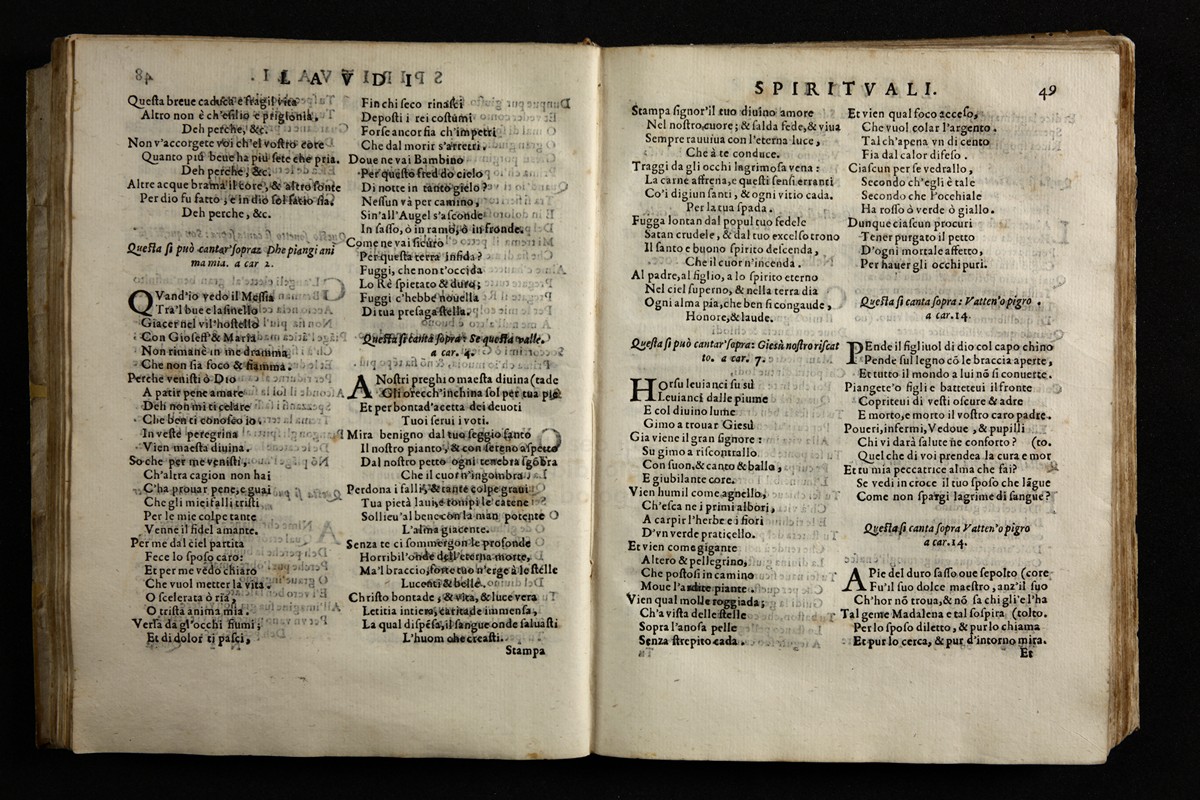 LAVDI
Questa breue caduca e fragil vita
Altro non è ch'esilio e prigionia,
Deh perche, &c.
Non v'accorgete voi ch'el vostro core
Quanto piu beue ha piu sete che pria.
Deh perche, &c.
Altre acque brama il core, & altro fonte
Per dio fu fatto, e in dio sol satio sia.
Deh perche, &c.
Questa si può cantar sopra: Dhe piangi ani
ma mia. a car 2.
QVand'io vedo il Messia
Tra'l bue e lasinello
Giacer nel vil'hostello
Con Gioseff' & Maria
Non rimane in me dramma
Che non sia foco & fiamma.
Perche venisti ò Dio
A patir pene amare
Deh non mi ti celare
Che ben ti conosco io.
In veste peregrina
Vien maesta diuina.
So che per me venisti,
Ch'altra cagion non hai
C'ha prouar pene, e guai
Che gli miei falli tristi
Per le mie colpe tante
Venne il fidel amante.
Per me dal ciel partita
Fece lo sposo caro:
Et per me vedo chiaro
Che vuol metter la vita.
O scelerata ò ria,
O trista anima mia.
Versa da gl'occhi fiumi;
Et di dolor ti pasci,
Fin chi seco rinasci
Deposti i rei costumi
Forse ancor fia ch'impetri
Che dal morir s'arretri.
Doue ne vai Bambino
Per questo fred do cielo
Di notte in tanto gielo?
Nessun và per camino,
Sin'all'Augel s'asconde
In sasso, ò in ramo, ò in fronde.
Come ne vai sicuro
Per questa terra infida?
Fuggi, che non t'occida
Lo Rè spietato & duro;
Fuggi c'hebbe nouella
Di tua presaga stella.
Questa si canta sopra: Se questa valle.
a car. 4.
A Nostri preghi o maesta diuina (tade
Gli orecch'inchina sol per tua pie
Et per bontad'acetta dei deuoti
Tuoi serui i voti.
Mira benigno dal tuo seggio santo
Il nostro pianto, & con sereno aspetto
Dal nostro petto ogni tenebra sgōbra
Che il cuor n'ingombra.
Perdona i falli, & tante colpe graui
Tua pietà laui, e rompi le catene
Solleu'al bene con la man potente
L'alma giacente.
Senza te ci sommergon le profonde
Horribil'onde dell'eterna morte,
Ma'l braccio, forte tuo n'erge à le stelle
Lucenti & belle.
Christo bontade, & vita, & luce vera
Letitia intiera, caritade immensa,
La qual dispēsa, il sangue onde saluasti
L'huom che creasti.
Stampa
SPIRITVALI. 49
Stampa signor'il tuo diuino amore
Nel nostro, cuore; & salda fede, & viua
Sempre rauuiua con l'eterna luce,
Che à te conduce.
Traggi da gli occhi lagrimosa vena:
La carne affrena, e questi sensi erranti
Co'i digiun santi, & ogni vitio cada.
Per la tua spada.
Fugga lontan dal popul tuo fedele
Satan crudele, & dal tuo excelso trono
Il santo e buono spirito descenda,
Che il cuor n'incenda.
Al padre, al figlio, a lo spirito eterno
Nel ciel superno, & nella terra dia
Ogni alma pia, che ben si congaude,
Honore, & laude.
Questa si può cantar'sopra: Giesù nostro riscat
to. a car. 7.
HOrsu leuianci su sù
Leuianci dalle piume
E col diuino lume
Gimo a trouar Giesù
Gia viene il gran signore:
Su gimo a riscontrallo
Con suon, & canto & ballo,
E giubilante core.
Vien humil come agnello,
Ch'esca ne i primi albori,
A carpir l'herbe e i fiori
D'vn verde praticello.
Et vien come gigante
Altero & pellegrino,
Che postosi in camino
Moue l'ardite piante.
Vien qual molle roggiada;
Ch'a vista delle stelle
Sopra l'anosa pelle
Senza strepito cada.
Et vien qual foco acceso,
Che vuol colar l'argento.
Tal ch'apena vn di cento
Fia dal calor difeso.
Ciascun per se vedrallo,
Secondo ch'egli è tale
Secondo che l'occhiale
Ha rosso ò verde ò giallo.
Dunque ciascun procuri
Tener purgato il petto
D'ogni mortale affetto,
Per hauer gli occhi puri.
Questa si canta sopra: Vatten'o pigro.
a car. 14.
PEnde il figliuol di dio col capo chino
Pende sul legno cō le braccia aperte,
Et tutto il mondo a lui nō si conuerte.
Piangete'o figli e batteteui il fronte
Copriteui di vesti oscure & adre
E morto, e morto il vostro caro padre.
Poueri, infermi, Vedoue, & pupilli
Chi vi darà salute ne conforto? (to.
Quel che di voi prendea la cura e mor
Et tu mia peccatrice alma che fai?
Se vedi in croce il tuo sposo che lāgue
Come non spargi lagrime di sangue?
Questa si canta sopra Vatten'o pigro
a car. 14.
A Pie del duro sasso oue sepolto (core
Fu'il suo dolce maestro, anz'il suo
Ch'hor nō troua, & nō sa chi gli'e l'ha
Tal geme Madalena e tal sospita (tolto.
Per lo sposo diletto, & pur lo chiama
Et pur lo cerca, & pur d'intorno mira.
Et